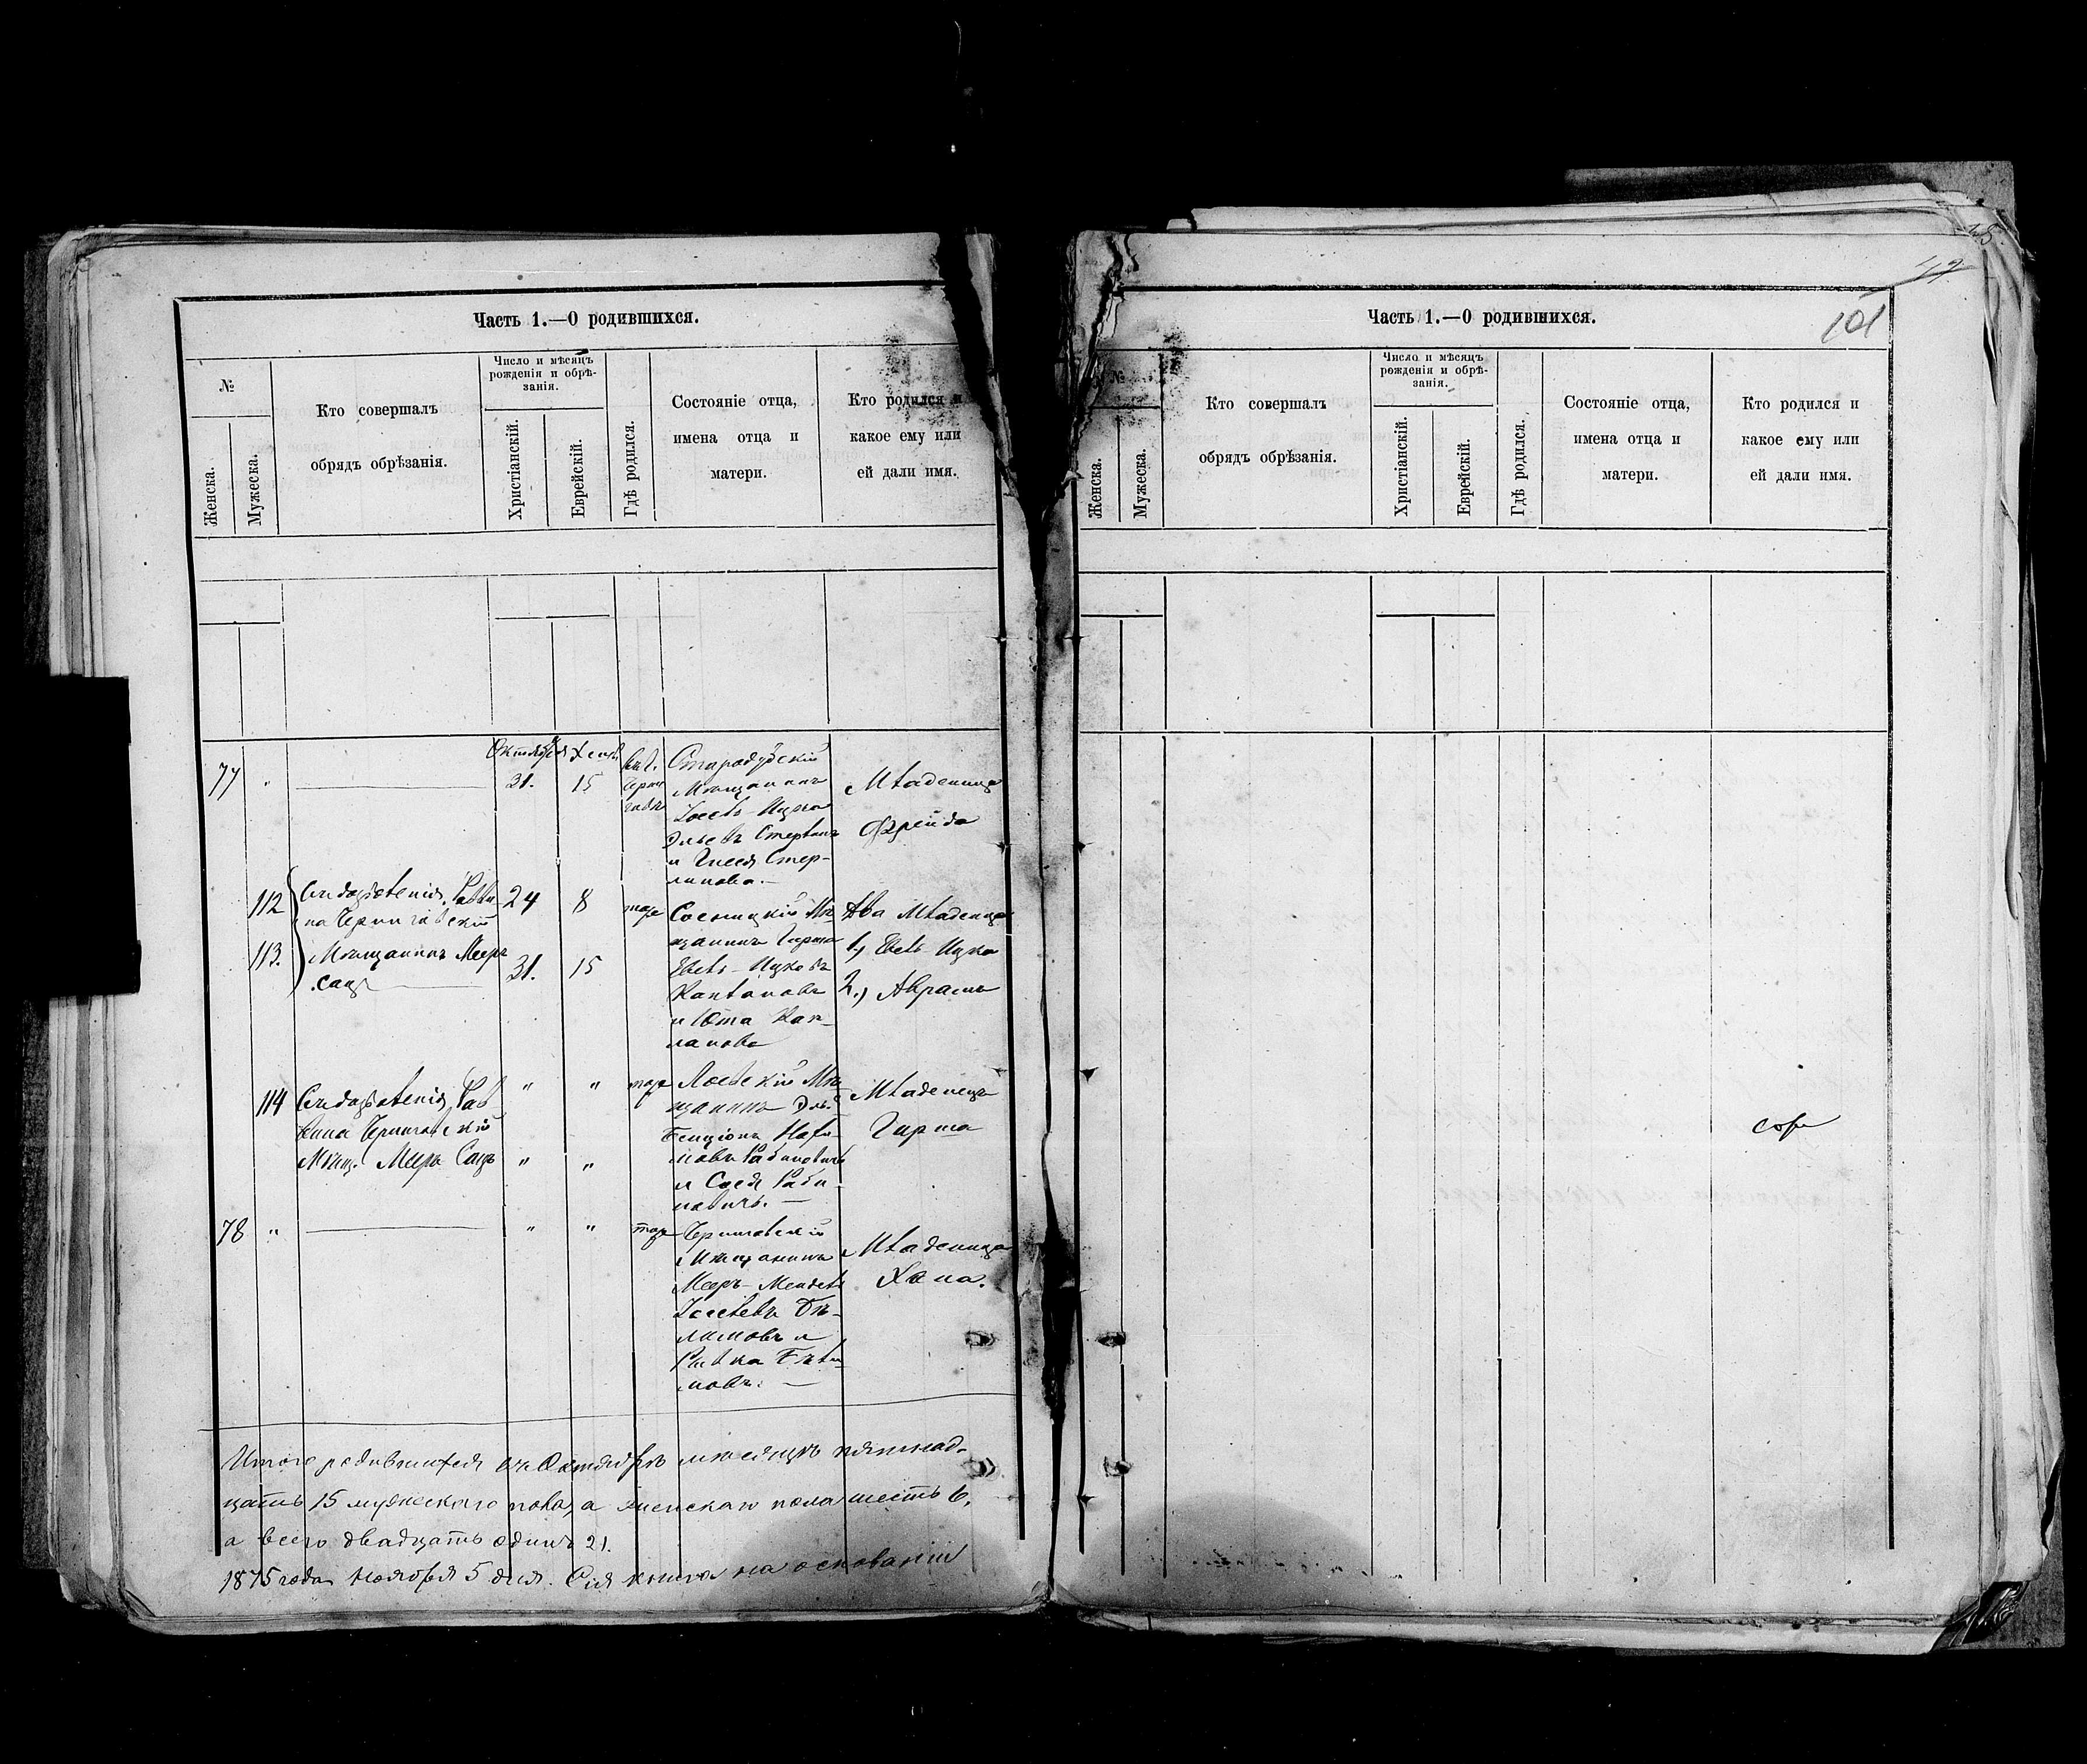 Часть 1.—О родившихся.
№
Женска.
Мужеска.
Кто совершалъ
обрядъ обрѣзанія.
Число и мѣсяцъ
рожденія и обрѣ-
занія.
Христіанскій.
Еврейскій.
Гдѣ родился.
Состояніе отца,
имена отца и
матери.
Кто родился и
какое ему или
ей дали имя.
77
"
Октября
31.
15
Стародубскій
Мѣщанинъ
Іосель-Ицка
Стер-
линова.—
Младеница
Фрейда
112
113.
на Черниговскій
Мѣщанинъ Мееръ
Сацъ
24
8
31.
15
тоже
Сосницкій Мѣ-
щанинъ Гирша
Ицковъ
Каплановъ
и Юта Кап-
ланова
Два Младенца
1,) Ицка
2,) Абрамъ
114
вина Черниговскій
Мѣщ. Мееръ Сацъ
"
"
"
"
тоже
Лоевскій Мѣ-
щанинъ
Бенціонъ
новъ Рабиновичъ
и Раби-
новичъ.—
Младенецъ
Гирша
78
"
"
"
тоже
Черниговскій
Мѣщанинъ
Мееръ-Мендель
Іоселевъ Бѣ-
линовъ и
Ривка Бѣли-
новъ.—
Младеница
Хана.
Итого родившихся въ Октябрѣ мѣсяцѣ пятнад-
цать 15 мужескаго пола, а женскаго пола шесть 6.
а всего двадцать одинъ 21.
1875 года Ноября 5 дня. Сія книга на основаніи
Часть 1.—О родившихся.
101
№
Женска.
Мужеска.
Кто совершалъ
обрядъ обрѣзанія.
Число и мѣсяцъ
рожденія и обрѣ-
занія.
Христіанскій.
Еврейскій.
Гдѣ родился.
Состояніе отца,
имена отца и
матери.
Кто родился и
какое ему или
ей дали имя.